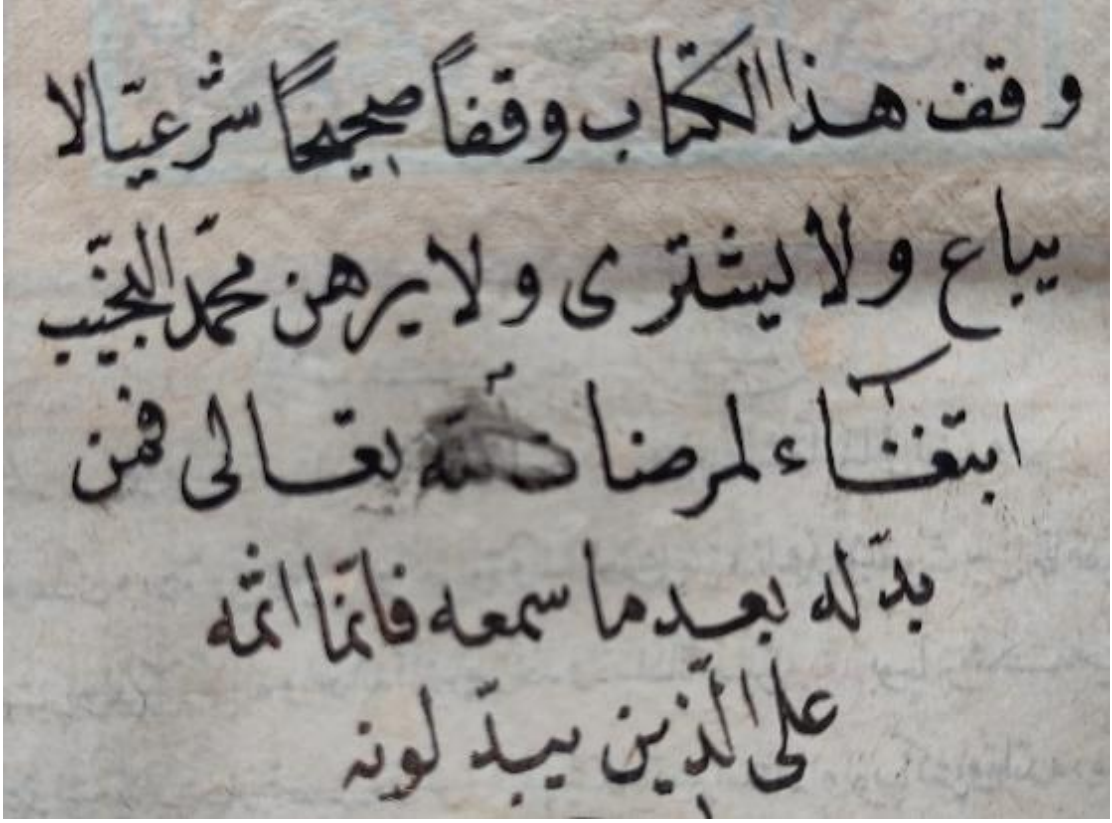 وقف هذا الكتاب وقفاً صحيحاً شرعيّا لا
يباع ولا يشترى ولا يرهن محمّد النجّيب
ابتغاء لمرضاته تعالى فمن
بدّله بعد ما سمعه فانّما اثمه
على الّذين يبدّلونه